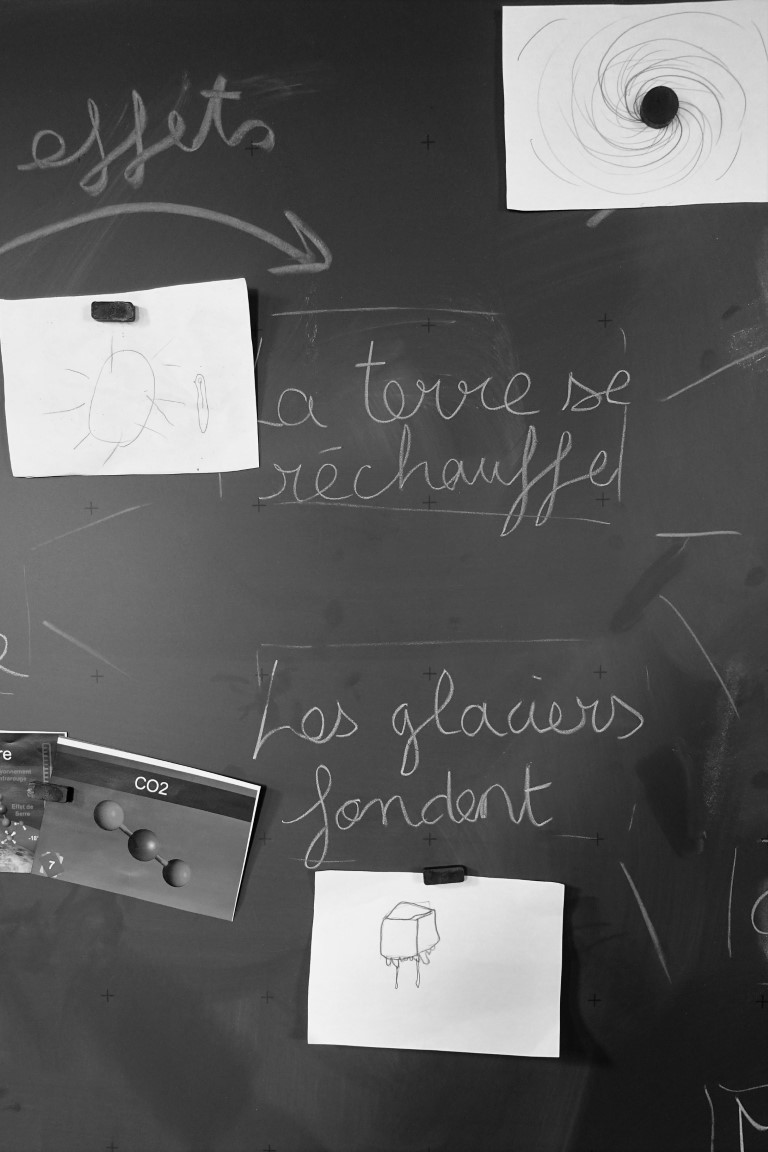 effets
La terre se
réchauffe
Les glaciers
fondent
CO2
Effet de
Serre
7